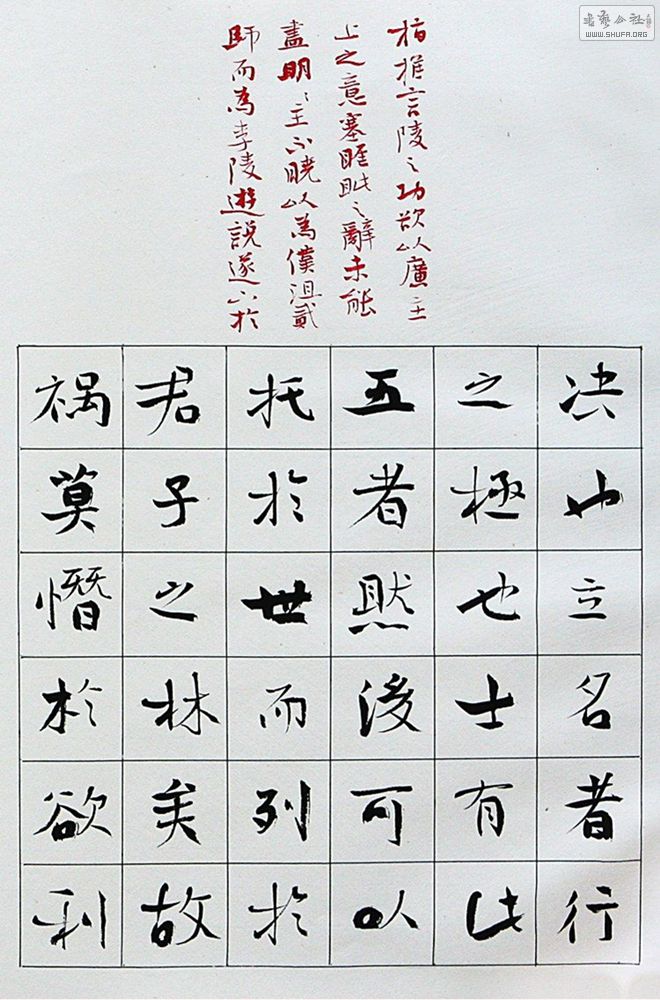 指推言陵之功欲以廣主
上之意塞睚眦之辭未能
盡明〻主不曉以為僕沮貳
師而為李陵遊說遂下於
决也立名者行
之極也士有此
五者然後可以
托於世而列於
君子之林矣故
祸莫憯於欲利
書藝公社
WWW.SHUFA.ORG